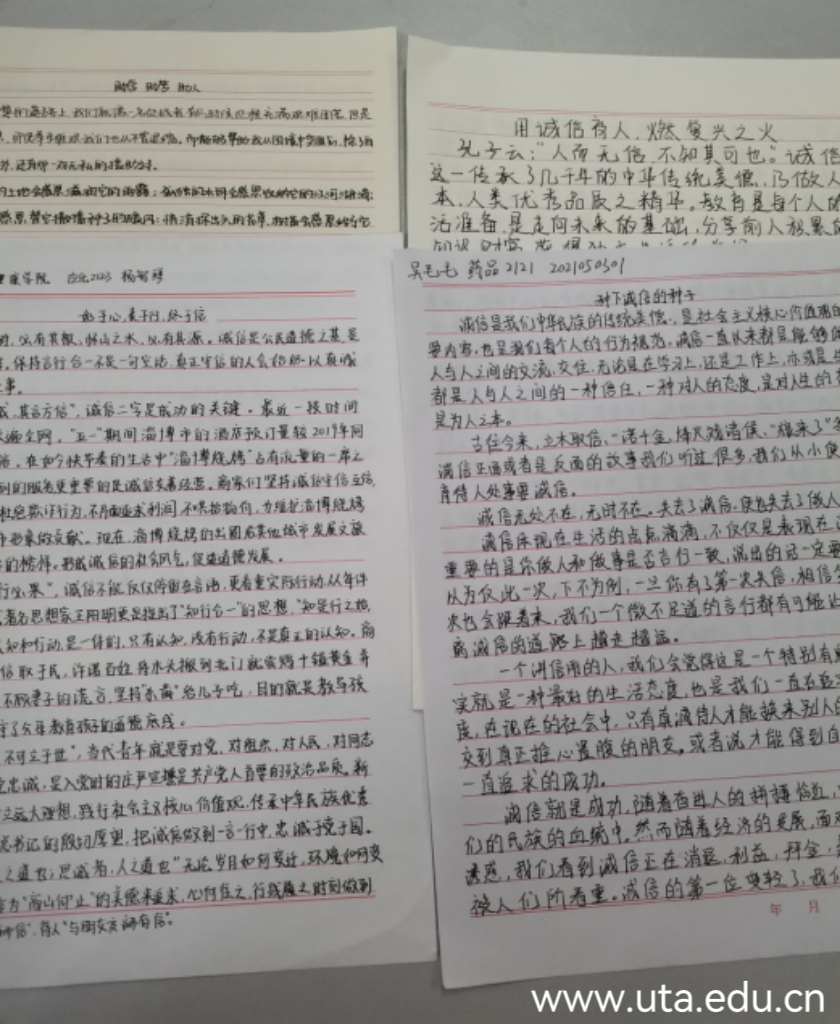 助学 助梦 助人
用诚信育人,燃复兴之火
孔子云:“人而无信,不知其可也。”诚信
这一传承了几千年的中华传统美德,乃做人
本,人类优秀品质之精华。教育是每个人的
活准备,是走向未来的基础,分享前人积累的
学院 应化2023
始于心,表于行,终于信
的,必有其根,怀山之水,必有其源。诚信是公民道德之基,是
保持言行合一不是一句空话,真正守信的人会始终以真诚
其言方信”,诚信二字是成功的关键。最近一段时间
遍全网,“五一”期间淄博市的酒店预订量较2019年同
在如今快节奏的生活中“淄博烧烤”占有流量的一席之
到的服务更重要的是诚信友善经营,商家们坚持诚信守信互信,
欺诈行为,不片面追求利润,不哄抬物价,为维护淄博烧烤
形象做贡献。现在,淄博烧烤的出圈为其他城市发展文旅
的榜样,形成诚信的社会风气,促进道德发展。
行必果”,诚信不能仅仅停留在言语,更看重实际行动,从每件
著名思想家王阳明更是提出了“知行合一”的思想,“知是行之始,
认知和行动,是一体的,只有认知,没有行动,不是真正的认知。商
信取于民,许诺百姓将木头搬到北门就赏赐十镒黄金,
不顾妻子的谎言,坚持“杀猪”给儿子吃,目的就是教导孩
守了父母教育孩子的道德底线。
不可立于世”,当代青年就是要对党、对祖国、对人民、对同志
党忠诚,是入党时的庄严宣誓是共产党人首要的政治品质。新
立远大理想,践行社会主义核心价值观,传承中华民族优秀
总书记的殷切厚望,把诚信做到一言一行中,忠诚于党于国。
之道也;思诚者,人之道也”无论岁月如何变迁,环境如何变
为“高山仰止”的美德来追求,心向往之,行践履之时刻做到
有人“与朋友交而有信”。
吴毛毛 药品2121 2021050301
种下诚信的种子
诚信是我们中华民族的传统美德,是社会主义核心价值观的
要内容,也是我们每个人的行为规范。诚信一直以来都是能够
人与人之间的交流,交往,无论是在学习上,还是工作上,亦或是
都是人与人之间的一种信任,一种对人的态度,是对人生的
是为人之本。
古往今来,立木取信,一诺千金,烽火戏诸侯,“狼来了”等
诚信正面或者是反面的故事我们听过很多,我们从小便
育待人处事要诚信。
诚信无处不在,无时不在。失去了诚信,便也失去了做人
诚信体现在生活的点点滴滴,不仅仅是表现在
重要的是你做人和做事是否言行一致,说出的话一定要
从为仅此一次,下不为例,一旦你有了第一次失信,相信
次也会跟着来,我们一个微不足道的言行都有可能让
离诚信的道路上越走越远。
一个讲信用的人,我们会觉得这是一个特别有
实就是一种最好的生活态度,也是我们一直在追求
度,在现在的社会中,只有真诚待人才能换来别人的
交到真正推心置腹的朋友。或者说才能得到自
一直追求的成功。
诚信就是成功,随着奋进人的拼搏
们的民族的血统中。然而随着经济的发展,面对
诱惑,我们看到诚信正在消退,利益,拜金,
被人们所看重。诚信的第一位变轻了,我们
年 月
www.uta.edu.cn